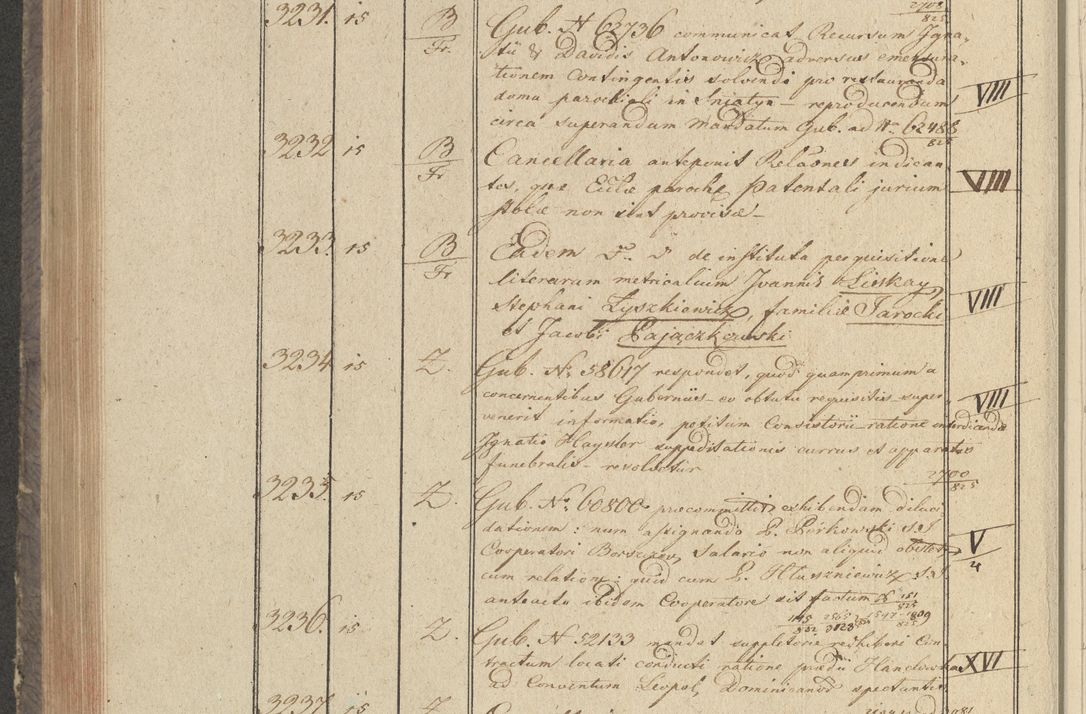 3231. 15 B/Fr. Gub. N 62736 communicat Recursum Igna-
2708/825
tii & Davidis Antonowicz adversus emensura-
tionem Contingentis solvendi pro restauranda
domu parochiali in Sniatyn – reproducendum VIII
circa superandum Mandatum Gub. ad Nr. 62488
825
3232 15 B/Fr Cancellaria anteponit Relaones indican
tes, quae Ecclae parochi Patentali jurium VIII
stolae non sint provisae –
3233. 15 B/Fr Eadem de instituta perquisitione
literarum metricalium Joannis Lieskay,
Stephani Łyszkiewicz, familiae Jarocki VIII
et Jacobi Pajączkowski
3234 15 Z. Gub. Nr. 58617 respondet, quod quamprimum a
concernentibus Guberniis – eo obtutu requisitis super
venerit informatio, petitum Consistorii – ratione interdicendae VIII
Ignatio Hayster suppeditationis currus et apparatus
funebralis – revolvetur
2700/825
3235. 15 Z. Gub. Nr. 60800 praecommittit exhibendam diluci
dationem: num assignando L. Piórkowski S.I.
Cooperatori Borszczov, Salario non aliquid obstet V/4
cum relatione: quid cum L. Hluszniewicz S.I.
anteactu ibidem Cooperatore sit factum 151/825
3236. 15 Z. Gub. N 52133 mandat suppletorie exhiberi Con-
tractum locati conducti ratione praedii Hanczowka XVI
ad Conventum Leopol. Dominicanor spectantis
3237. 15 Z